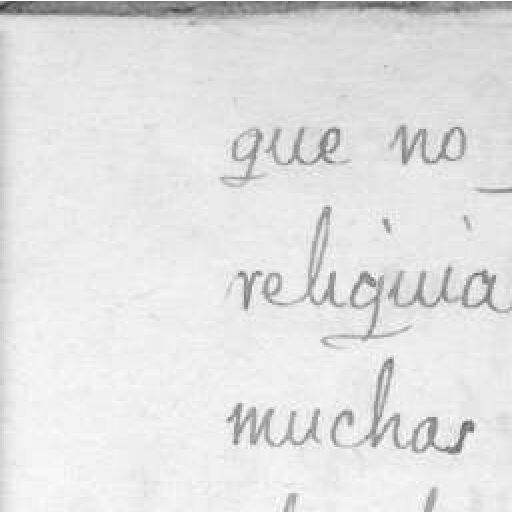 que no
reliquia
muchas